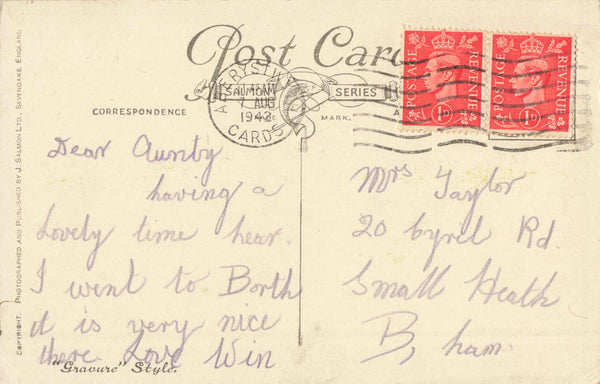 Post Card
SALMON SERIES
TRADE MARK.
CORRESPONDENCE
ABERYSTWYTH
7 AUG
1942
CARDS
POSTAGE REVENUE
1D
POSTAGE REVENUE
1D
Dear Aunty
having a
Lovely time hear.
I went to Borth
it is very nice
there. Love Win
Mrs Taylor
20 Cyril Rd.
Small Heath
B, ham.
"Gravure" Style.
COPYRIGHT. PHOTOGRAPHED AND PUBLISHED BY J. SALMON LTD., SEVENOAKS, ENGLAND